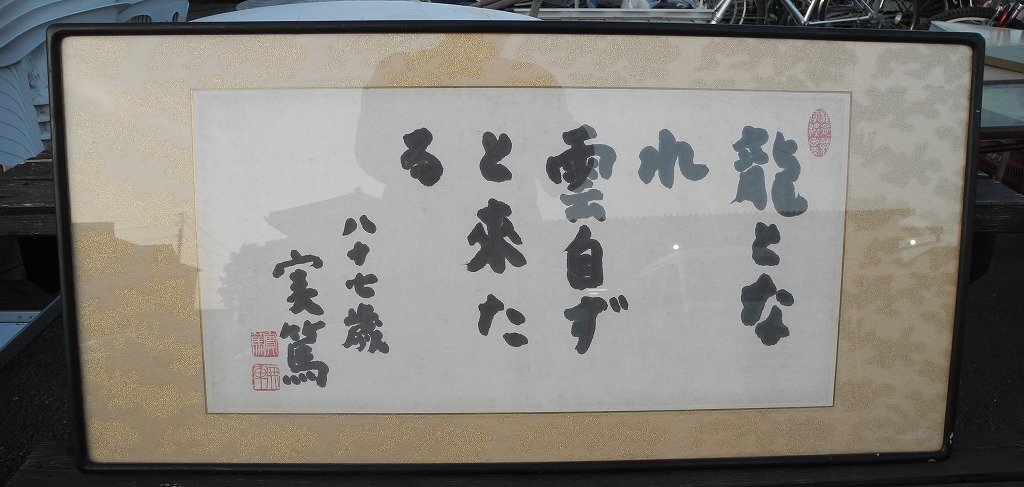 龍とな
れ
雲自ず
と来た
る
八十七歳
実篤